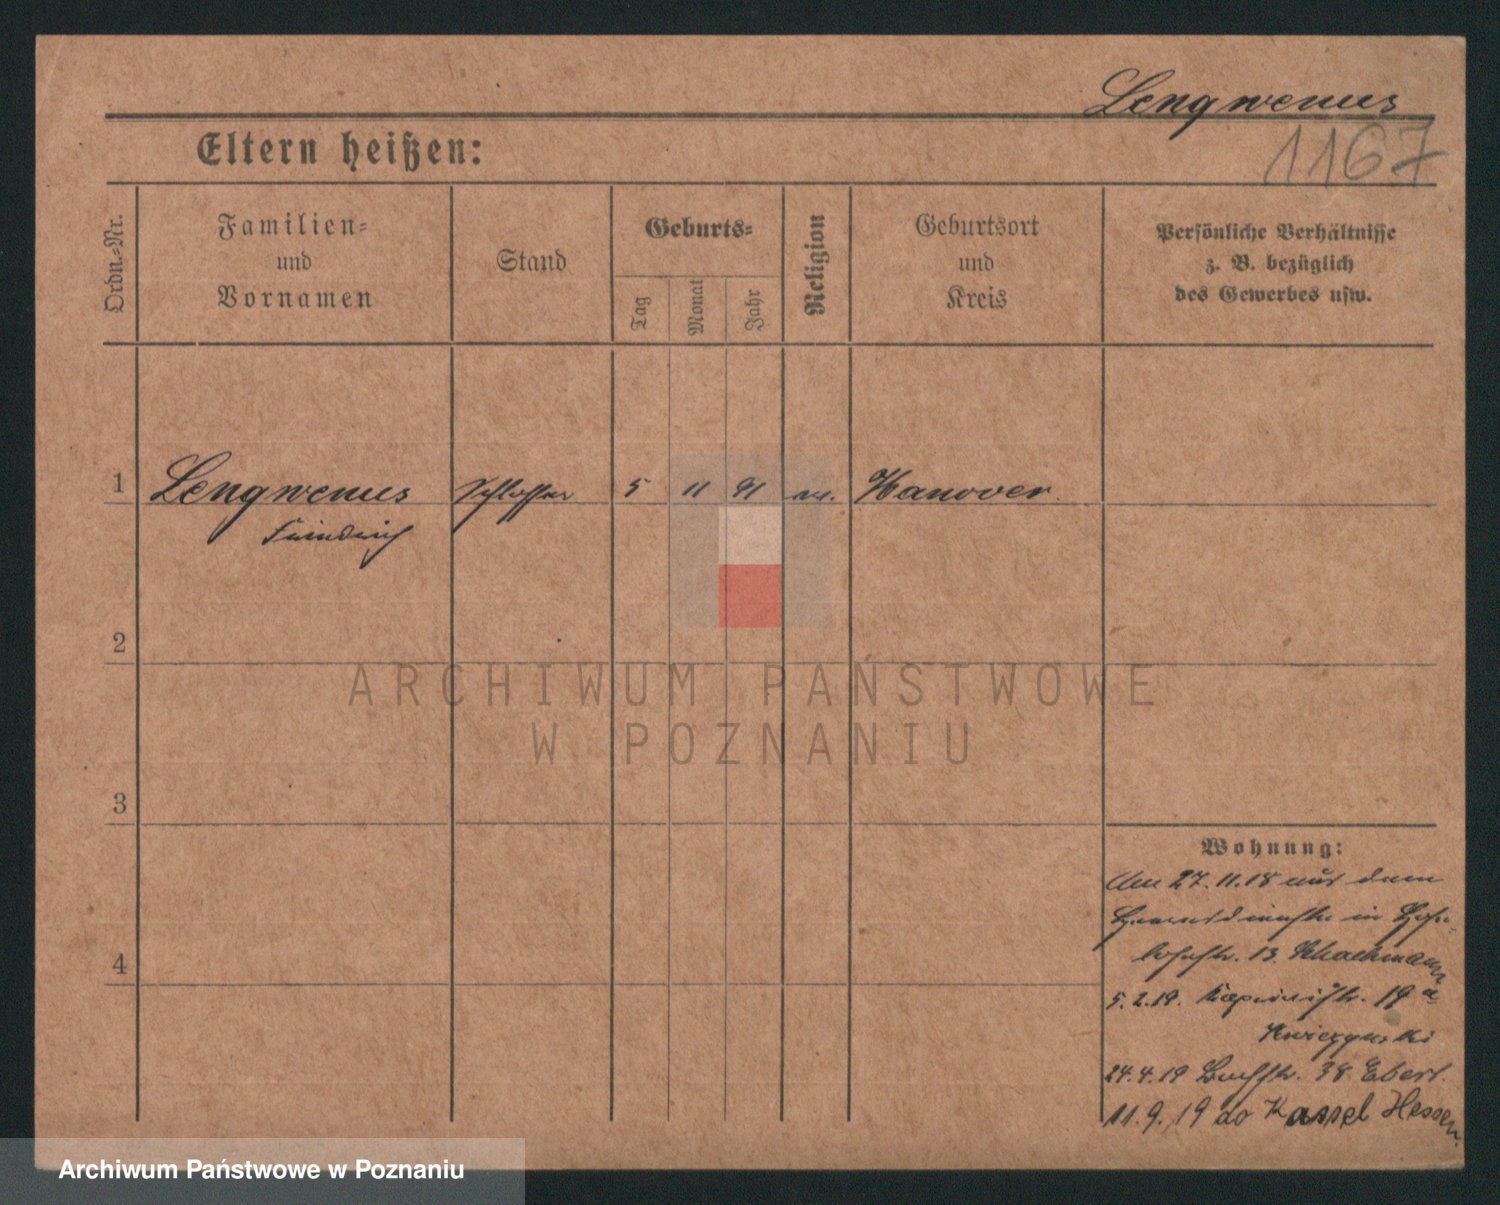 Lengwenus
1167
Eltern heißen:
Ordn.-Nr.
Familien-
und
Vornamen
Stand
Geburts-
Tag
Monat
Jahr
Religion
Geburtsort
und
Kreis
Persönliche Verhältnisse
z. B. bezüglich
des Gewerbes usw.
1
Lengwenus
Friedrich
Schlosser
5
11
91
Hanover
2
ARCHIWUM PAŃSTWOWE
W POZNANIU
3
Wohnung:
Am 27.11.18 aus dem
Heeresdienste in
13.
4
5.2.19. 19
24.4.19 Buchstr. 38 Ebert.
11.9.19 Kassel Hessen.
Archiwum Państwowe w Poznaniu